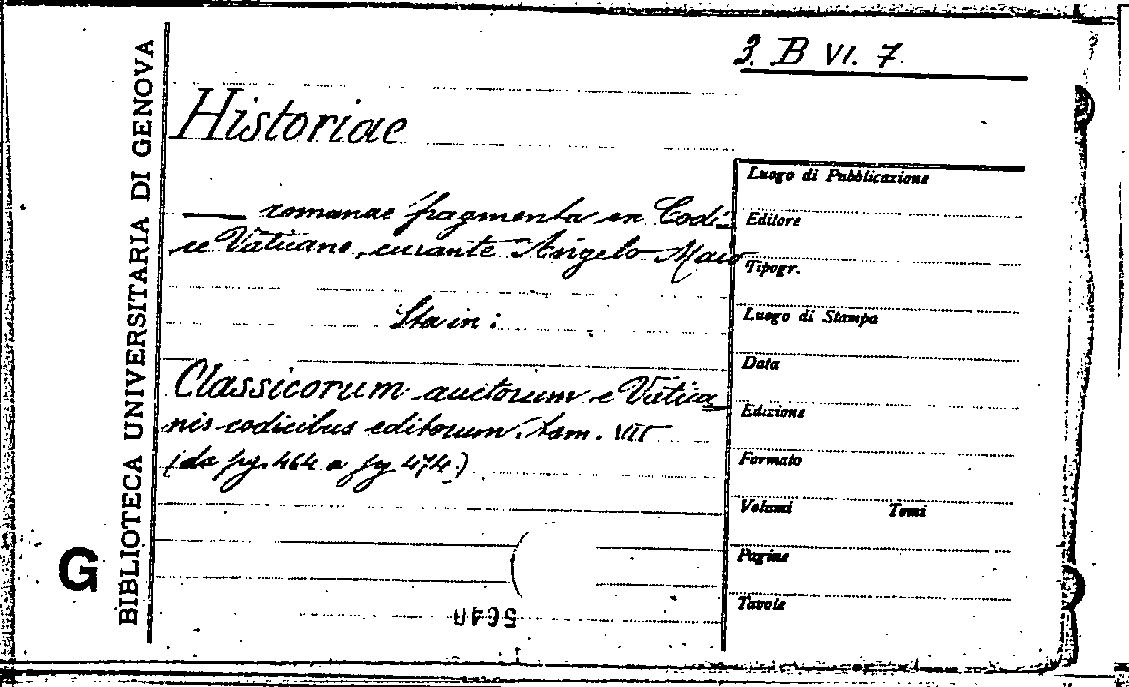 3. B VI. 7.
BIBLIOTECA UNIVERSITARIA DI GENOVA
G
Historiae
— romanae fragmenta ex Codi-
ce Vaticano, curante Angelo Maio
Sta in:
Classicorum auctorum e Vatica-
nis codicibus editorum. tom. VII
(da pg. 464 a pg 474.)
Luogo di Pubblicazione
Editore
Tipogr.
Luogo di Stampa
Data
Edizione
Formato
Volumi Tomi
Pagine
Tavole